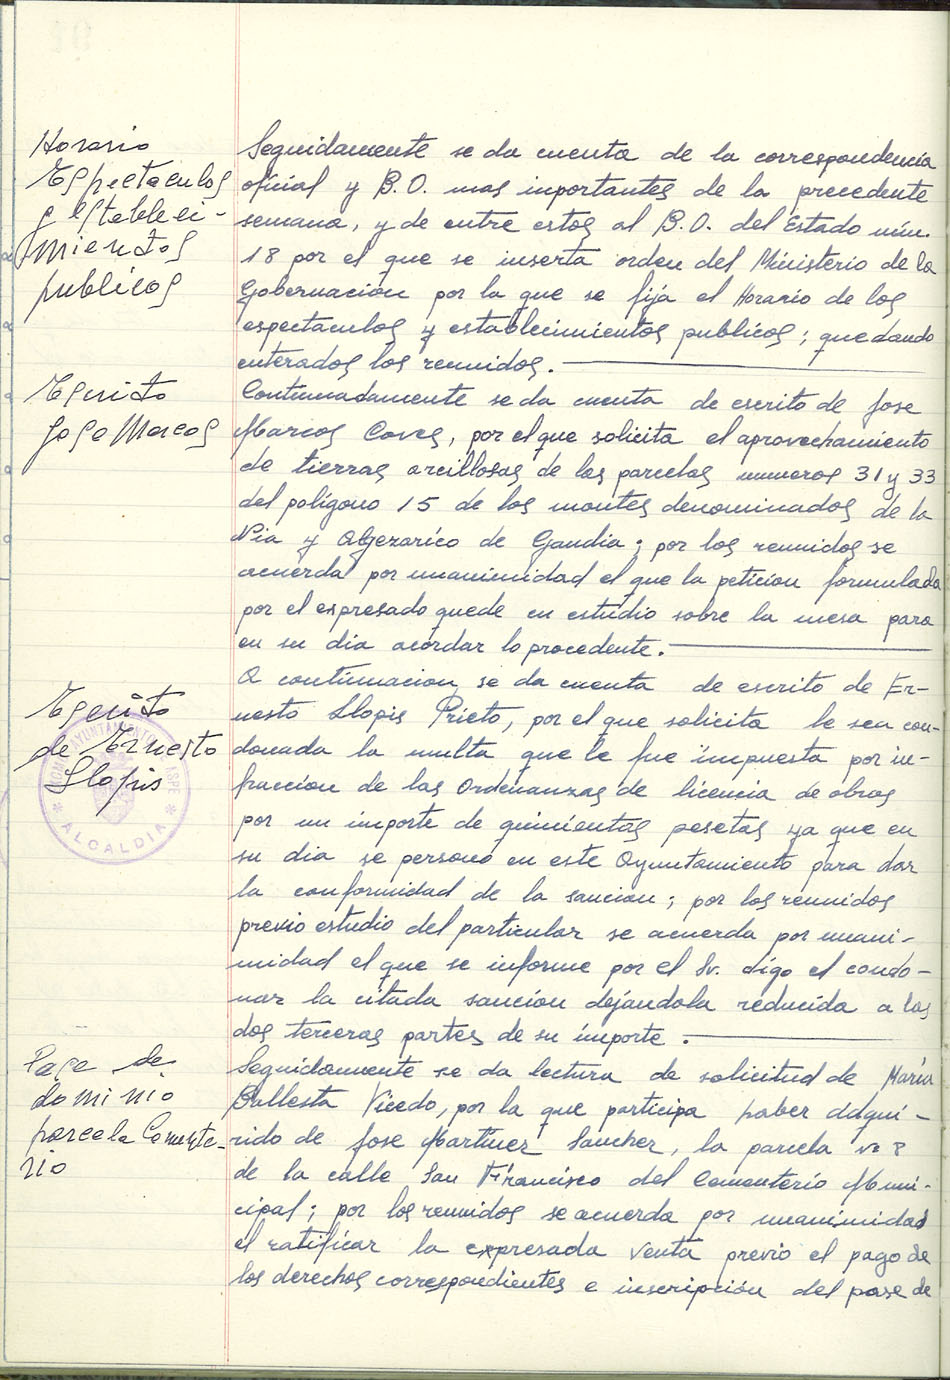 Horario
Espectaculos
y estableci-
mientos
publicos
Seguidamente se da cuenta de la correspondencia
oficial y B.O. mas inportantes de la precedente
semana, y de entre estos al B.O. del Estado núm.
18 por el que se inserta orden del Ministerio de la
Gobernacion por la que se fija el Horario de los
espectaculos y establecimientos publicos; quedando
enterados los reunidos.
Escrito
Jose Marcos
Continuadamente se da cuenta de escrito de Jose
Marcos Coves, por el que solicita el aprovechamiento
de tierras arcillosas de las parcelas numeros 31 y 33
del polígono 15 de los montes denominados de la
Pia y Algezarico de Gandia; por los reunidos se
acuerda por unanimidad el que la peticion formulada
por el espresado quede en estudio sobre la mesa para
en su dia acordar lo procedente.
Escrito
de Ernesto
Llopis
A continuacion se da cuenta de escrito de Er-
nesto Llopis Prieto, por el que solicita le sea con-
donada la multa que le fue impuesta por in-
fraccion de las Ordenanzas de licencia de obras
por un importe de quinientas pesetas ya que en
su dia se persono en este Ayuntamiento para dar
la conformidad de la sancion; por los reunidos
previo estudio del particular se acuerda por unani-
midad el que se informe por el Sr. digo el condo-
nar la citada sanción dejándola reducida a las
dos terceras partes de su importe.
ALCALDIA
Pase de
dominio
parcela Cemente-
rio
Seguidamente se da lectura de solicitud de María
Ballesta Vicedo, por la que participa haber adqui-
rido de Jose Martinez Sanchez, la parcela nº 8
de la calle San Francisco del Cementerio Muni-
cipal; por los reunidos se acuerda por unanimidad
el ratificar la expresada venta previo el pago de
los derechos correspondientes e inscripción del pase de